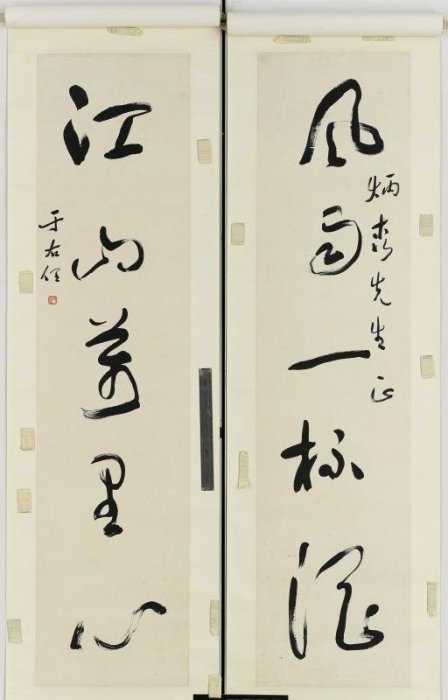 風雨一杯酒
炳森先生正
江山萬里心
于右任